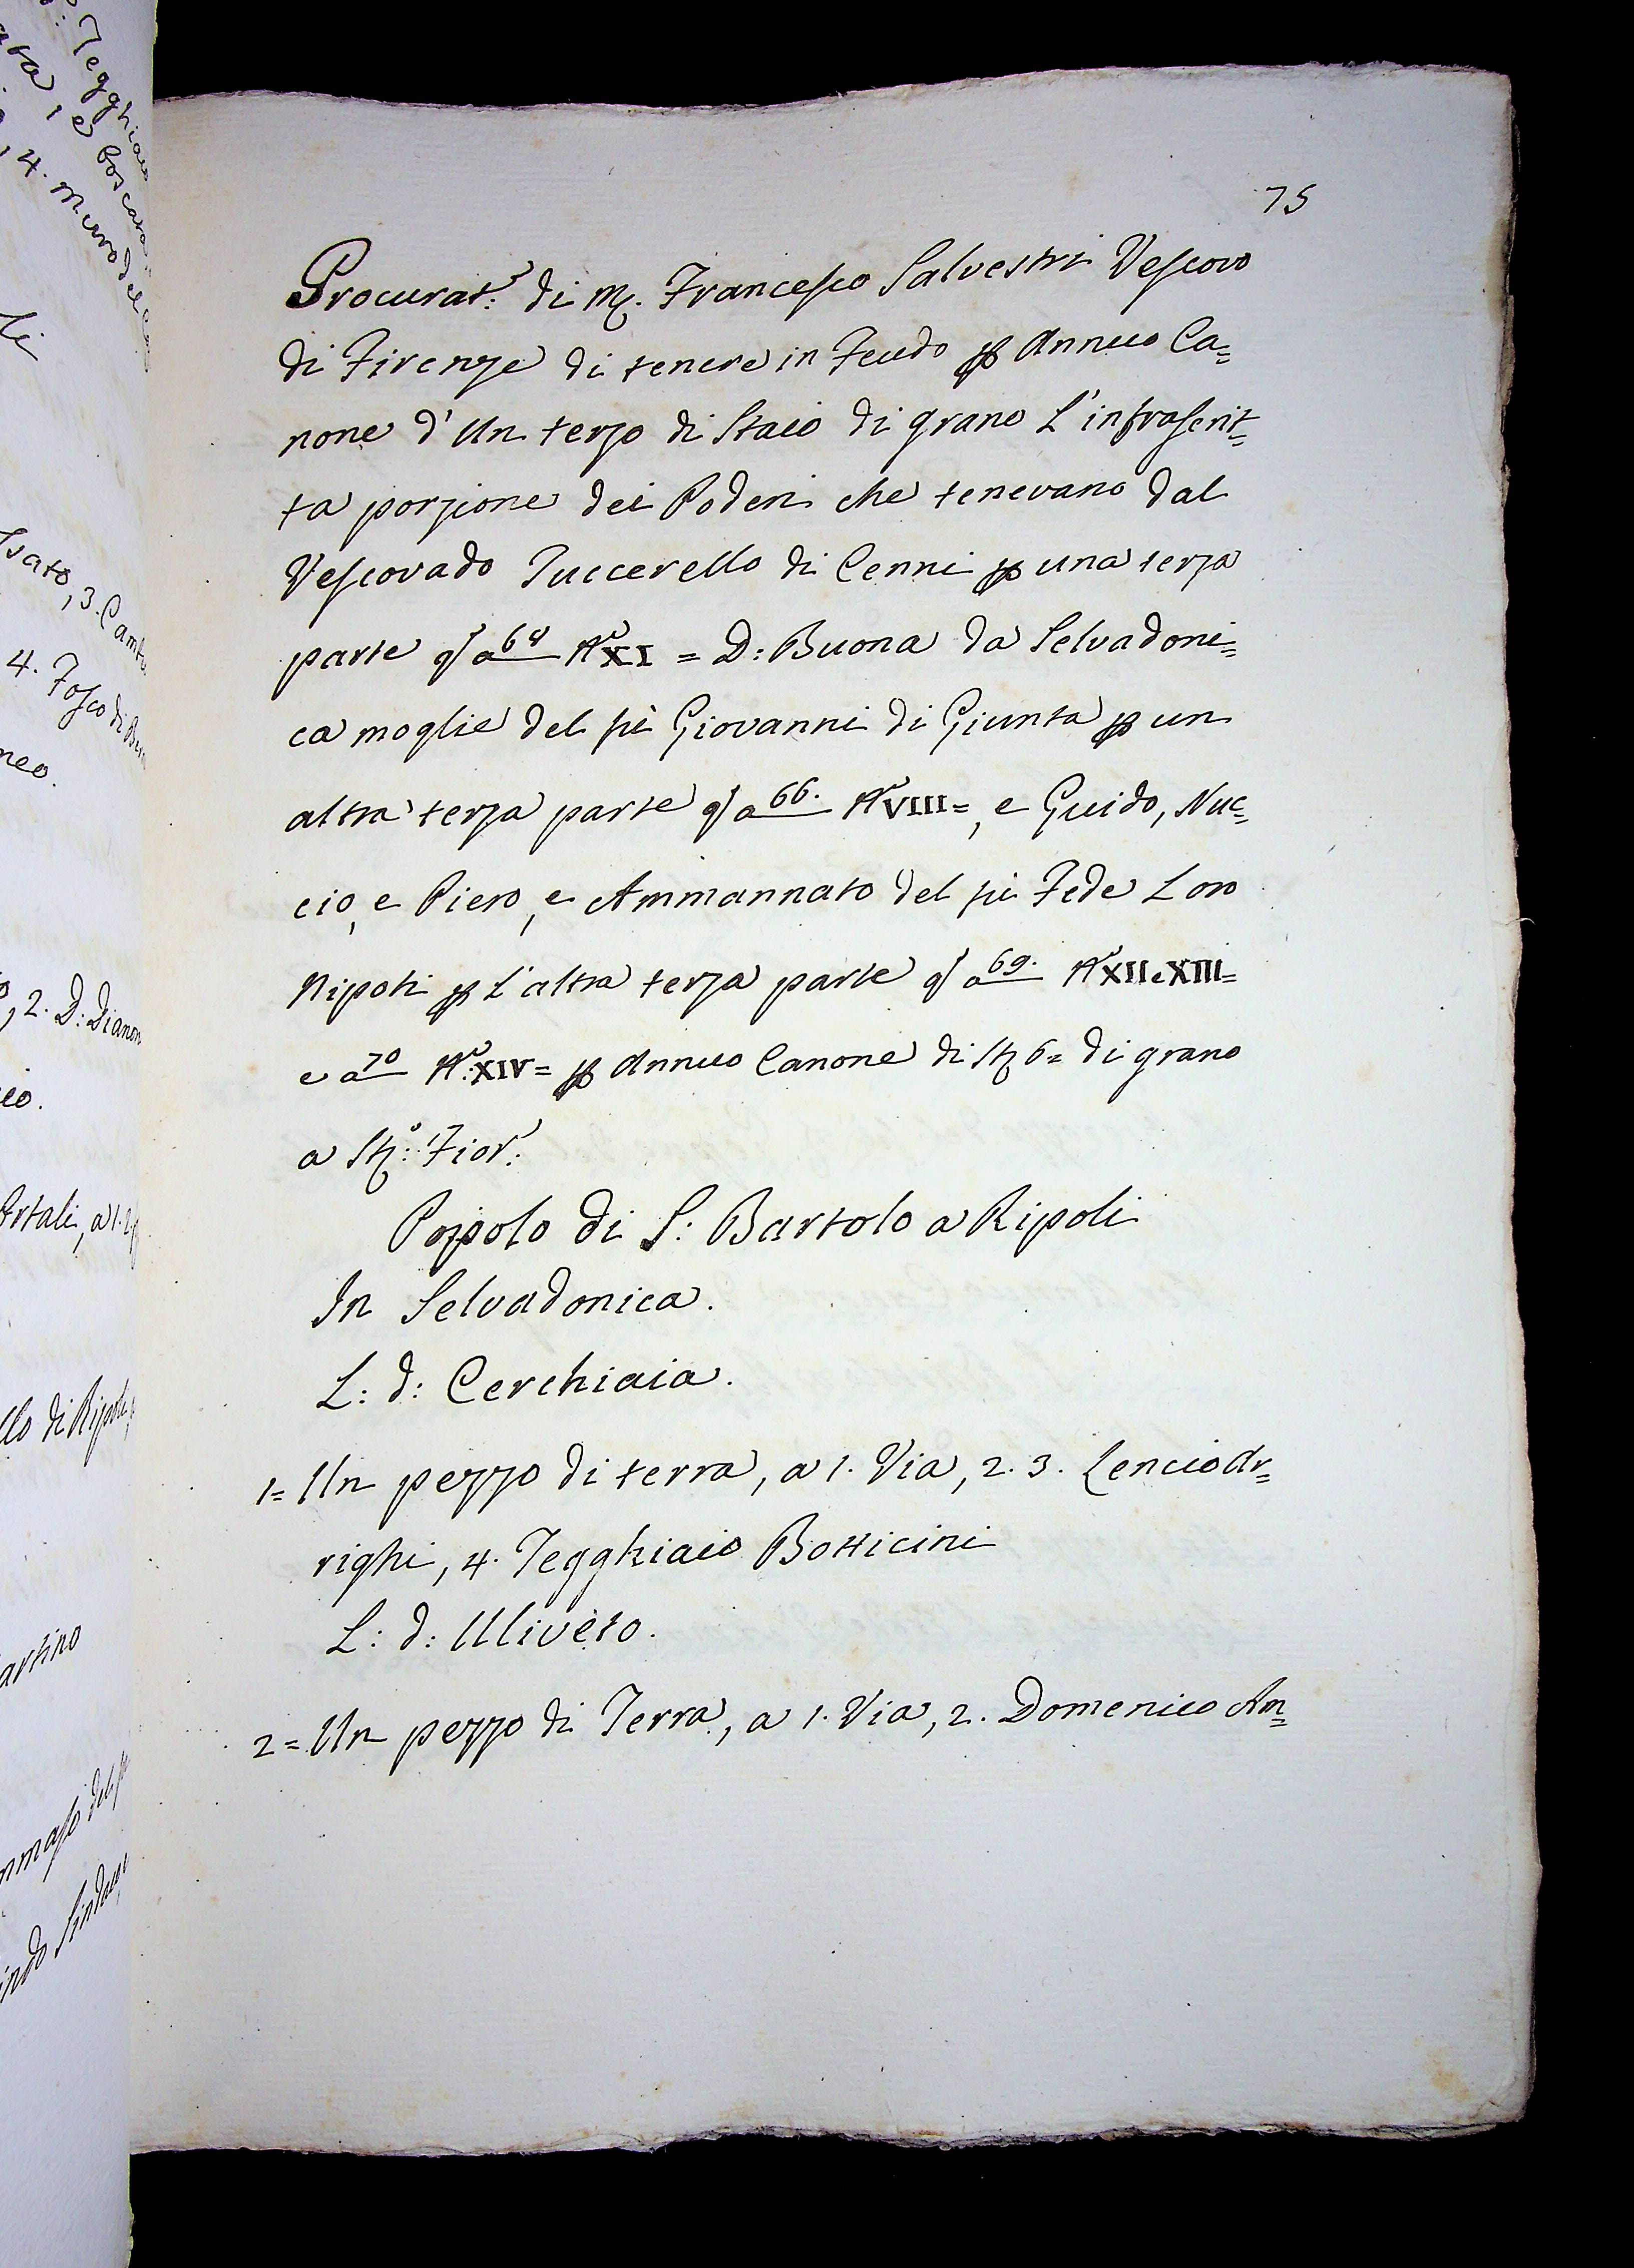 75
Procurat.e di M. Francesco Salvestri Vescovo
di Firenze di tenere in Feudo p Annuo Ca=
none d'Un terzo di Staio di grano L'infrascrit=
ta porzione dei Poderi che tenevano dal
Vescovado Tuccerello di Cenni p una terza
parte q a 68 No XI = D: Buona da Selvadoni=
ca moglie del fù Giovanni di Giunta p un
altra terza parte q a 66. No VIII=, e Guido, Nuc=
cio, e Piero, e Ammannato del fù Fede Loro
Nipoti p L'altra terza parte q a 69. No XII e XIII=
e a 70 No: XIV= p Annuo Canone di St 6= di grano
a St:o Fior:o
Popolo di S: Bartolo a Ripoli
In Selvadonica.
L: d: Cerchiaia.
1= Un pezzo di terra, a 1. Via, 2. 3. Lencio Ar=
righi, 4. Tegghiaio Botticini
L: d: Uliveto.
2= Un pezzo di Terra, a 1. Via, 2. Domenico Am=